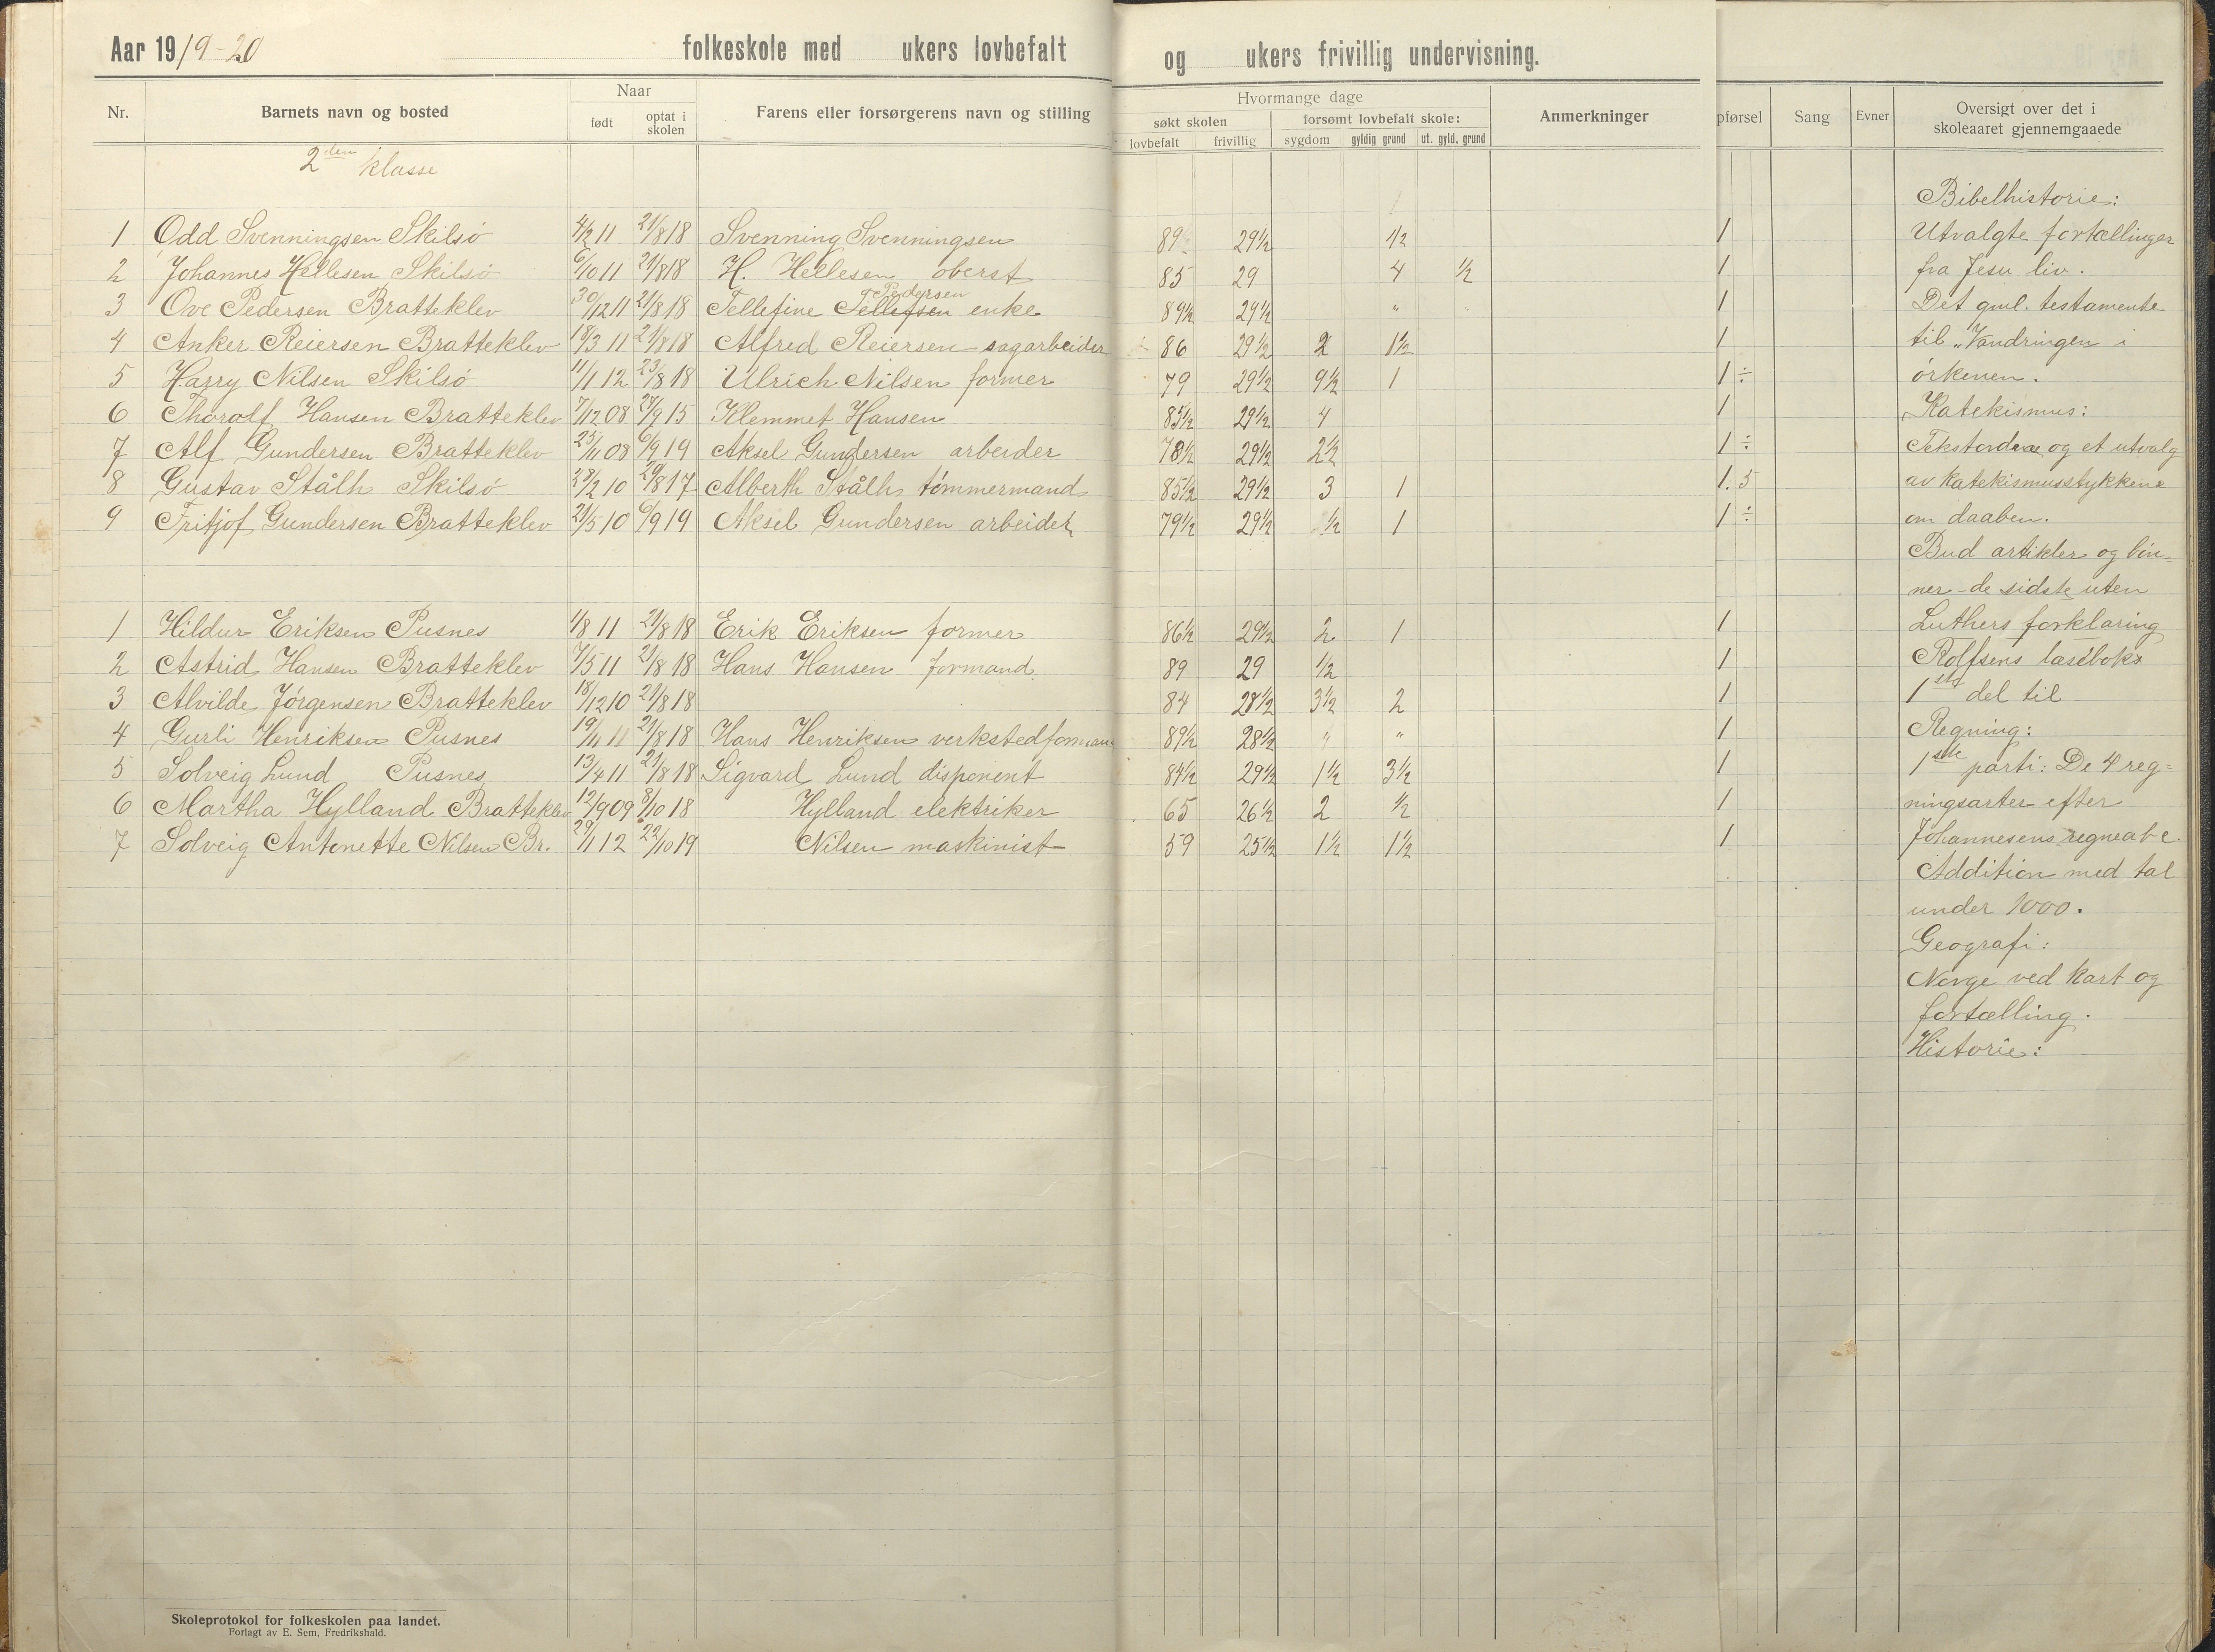 Aar 1919-20 folkeskole med ukers lovbefalt og ukers frivillig undervisning.
Nr. Barnets navn og bosted Naar født optat i skolen Farens eller forsørgerens navn og stilling Hvormange dage søkt skolen lovbefalt frivillig forsømt lovbefalt skole: sygdom gyldig grund ut. gyld. grund Anmerkninger pførsel Sang Evner Oversigt over det i skoleaaret gjennemgaaede
2den klasse
Bibelhistorie:
1 Odd Svenningsen Skilsö 4/2 11 21/8 18 Svenning Svenningsen 89 29½ ½ 1 Utvalgte fortællinger
2 Johannes Hellesen Skilsö 6/10 11 21/8 18 H. Hellesen oberst 85 29 4 ½ 1 fra Jesu liv.
3 Ove Pedersen Bratteklev 30/12 11 21/8 18 Tellefine Tellefsen Pedersen enke 89½ 29½ " 1 Det gml. testamente
4 Anker Reiersen Bratteklev 18/3 11 21/8 18 Alfred Reiersen sagarbeider 86 29½ 2 1½ 1 til „Vandringen i
5 Harry Nilsen Skilsö 11/1 12 23/8 18 Ulrich Nilsen former 79 29½ 9½ 1 1 ÷ örkenen.
6 Thoralf Hansen Bratteklev 7/12 08 /9 15 Klemmet Hansen 85½ 29½ 4 1 Katekismus:
7 Alf Gundersen Bratteklev 25/11 08 6/9 19 Aksel Gundersen arbeider 78½ 29½ 2½ 1 ÷ Tekstordene og et utvalg
8 Gustav Stålh Skilsö 28/2 10 20/8 17 Alberth Stålh tömmermand 85½ 29½ 3 1 1.5 av katekismusstykkene
9 Fritjof Gundersen Bratteklev 21/5 10 6/9 19 Aksel Gundersen arbeider 79½ 29½ ½ 1 1 ÷ om daaben.
Bud artikler og bön-
ner - de sidste uten
1 Hildur Eriksen Pusnes 1/8 11 21/8 18 Erik Eriksen former 86½ 29½ 2 1 1 Luthers forklaring
2 Astrid Hansen Bratteklev 7/5 11 21/8 18 Hans Hansen formand. 89 29 ½ 1 Rolfsens læsebok
3 Alvilde Jörgensen Bratteklev 18/12 10 21/8 18 84 28½ 3½ 2 1 1ste del til
4 Gurli Henriksen Pusnes 19/11 11 21/8 18 Hans Henriksen verkstedformand 89½ 28½ " " 1 Regning:
5 Solveig Lund Pusnes 13/4 11 21/8 18 Sigvard Lund disponent 84½ 29½ 1½ 3½ 1 1ste parti: De 4 reg-
6 Martha Hylland Bratteklev 12/9 09 8/10 18 Hylland elektriker 65 26½ 2 ½ 1 ningsarter efter
7 Solveig Antonette Nilsen Br. 29/1 12 22/10 19 Nilsen maskinist 59 25½ 1½ 1½ 1 Johannesens regneabc.
Addition med tal
under 1000.
Geografi:
Norge ved kart og
fortælling.
Historie:
Skoleprotokol for folkeskolen paa landet.
Forlagt av E. Sem, Fredrikshald.